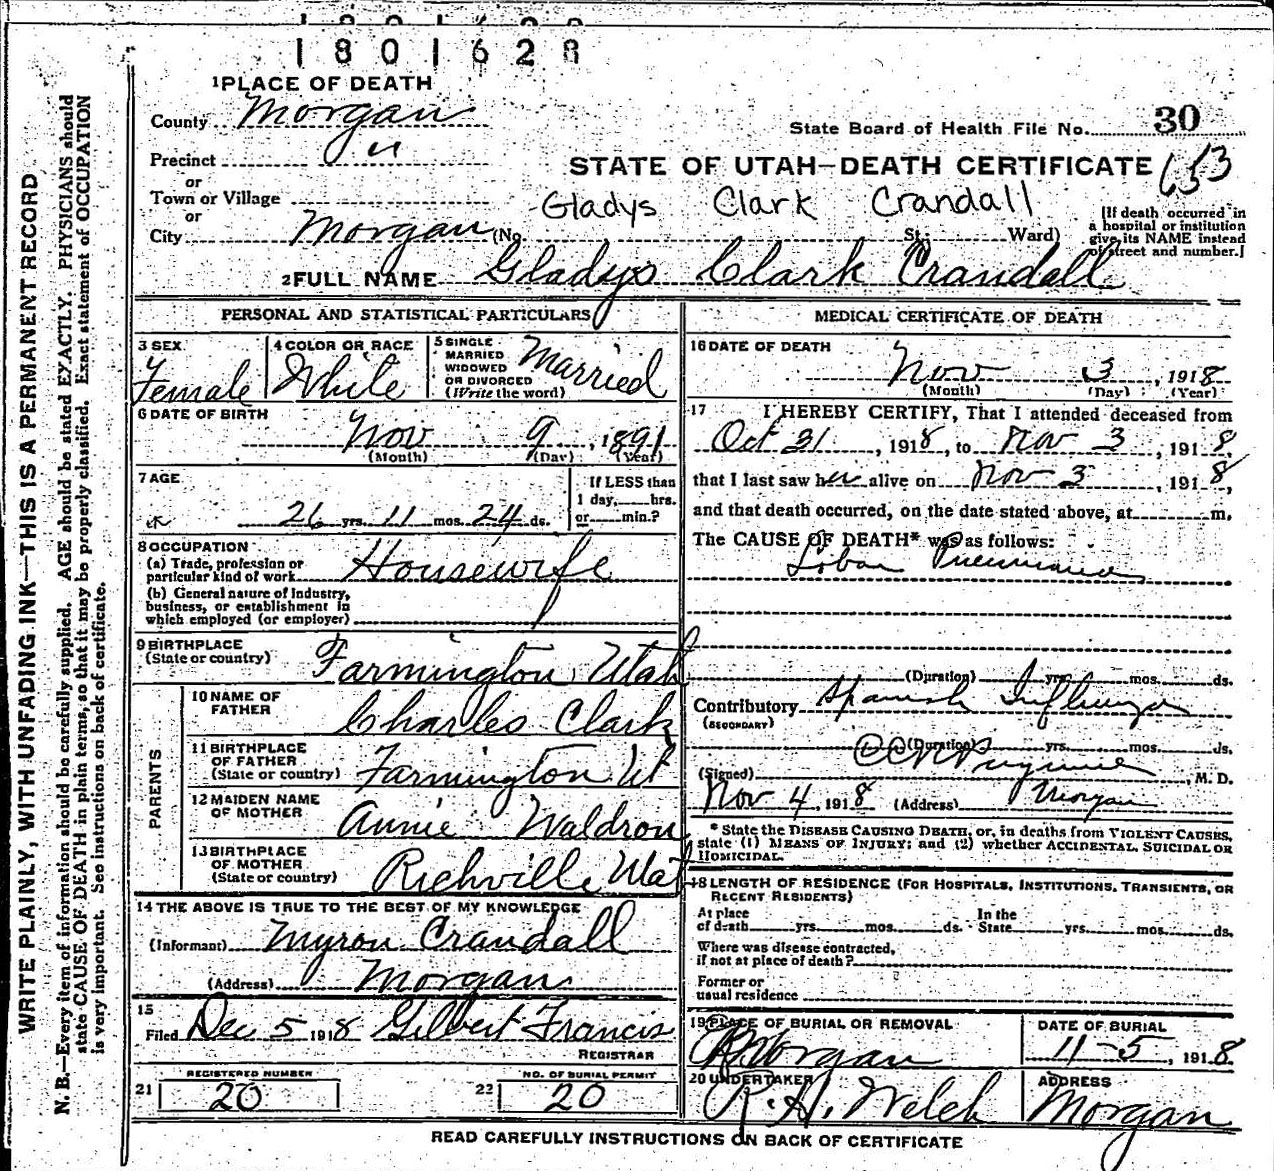 1801628
1 PLACE OF DEATH
County Morgan
State Board of Health File No. 30
Precinct "
STATE OF UTAH—DEATH CERTIFICATE 653
or
Town or Village
Gladys Clark Crandall
or
City Morgan (No. St.; Ward)
[If death occurred in
a hospital or institution
give its NAME instead
of street and number.]
2 FULL NAME Gladys Clark Crandall
PERSONAL AND STATISTICAL PARTICULARS
3 SEX
Female
4 COLOR OR RACE
White
5 SINGLE
MARRIED
WIDOWED
OR DIVORCED
(Write the word)
Married
6 DATE OF BIRTH
Nov 9, 1891
(Month) (Day) (Year)
7 AGE
26 yrs. 11 mos. 24 ds.
If LESS than
1 day, hrs.
or min.?
8 OCCUPATION
(a) Trade, profession or
particular kind of work Housewife
(b) General nature of Industry,
business, or establishment in
which employed (or employer)
9 BIRTHPLACE
(State or country) Farmington Utah
PARENTS
10 NAME OF
FATHER Charles Clark
11 BIRTHPLACE
OF FATHER
(State or country) Farmington Ut
12 MAIDEN NAME
OF MOTHER Annie Waldron
13 BIRTHPLACE
OF MOTHER
(State or country) Richville Utah
14 THE ABOVE IS TRUE TO THE BEST OF MY KNOWLEDGE
(Informant) Myron Crandall
(Address) Morgan
15
Filed Dec 5 1918 Gilbert Francis
REGISTRAR
21 REGISTERED NUMBER
20
22 NO. OF BURIAL PERMIT
20
MEDICAL CERTIFICATE OF DEATH
16 DATE OF DEATH
Nov 3, 1918
(Month) (Day) (Year)
17 I HEREBY CERTIFY, That I attended deceased from
Oct 31, 1918, to Nov 3, 1918,
that I last saw her alive on Nov 3, 1918,
and that death occurred, on the date stated above, at m.
The CAUSE OF DEATH* was as follows:
Lobar Pneumonia
(Duration) yrs. mos. ds.
Contributory Spanish Influenza
(SECONDARY)
(Duration) yrs. mos. ds.
(Signed) , M. D.
Nov 4, 1918 (Address) Morgan
* State the DISEASE CAUSING DEATH, or, in deaths from VIOLENT CAUSES,
state (1) MEANS OF INJURY; and (2) whether ACCIDENTAL, SUICIDAL OR
HOMICIDAL.
18 LENGTH OF RESIDENCE (FOR HOSPITALS, INSTITUTIONS, TRANSIENTS, OR
RECENT RESIDENTS)
At place
of death yrs. mos. ds.
In the
State yrs. mos. ds.
Where was disease contracted,
if not at place of death?
Former or
usual residence
19 PLACE OF BURIAL OR REMOVAL
Morgan
DATE OF BURIAL
11-5, 1918
20 UNDERTAKER
R. H. Welch
ADDRESS
Morgan
READ CAREFULLY INSTRUCTIONS ON BACK OF CERTIFICATE
WRITE PLAINLY, WITH UNFADING INK—THIS IS A PERMANENT RECORD
N. B.—Every item of information should be carefully supplied. AGE should be stated EXACTLY. PHYSICIANS should
state CAUSE OF DEATH in plain terms, so that it may be properly classified. Exact statement of OCCUPATION
is very important. See instructions on back of certificate.